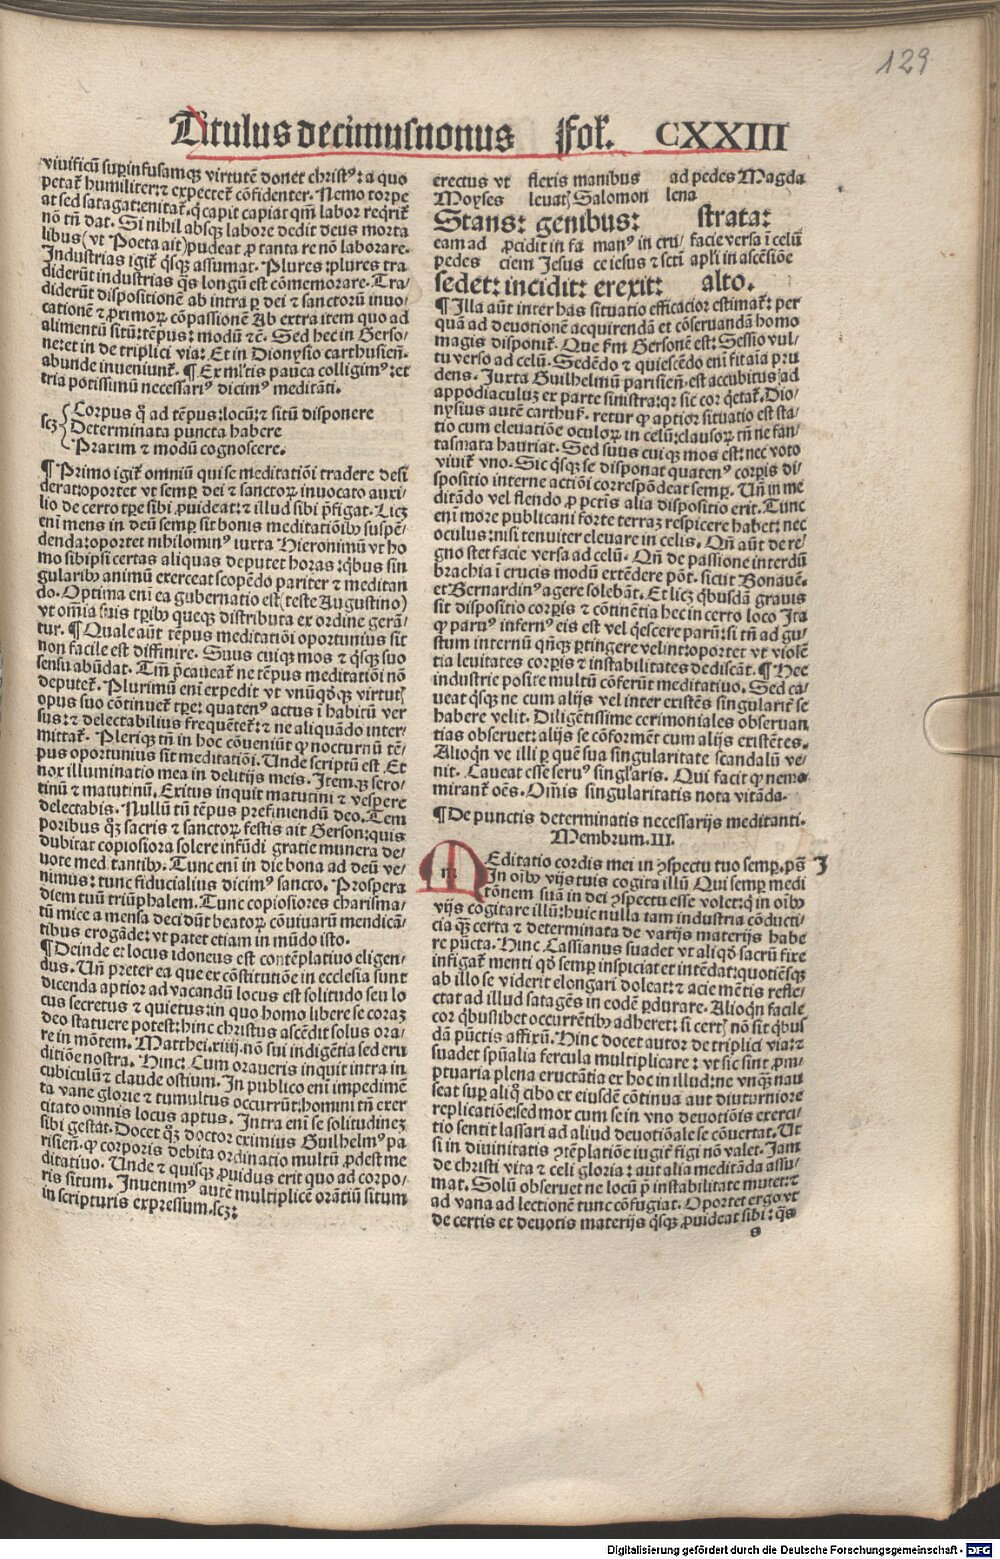 129
Titulus decimusnonus Fol. CXXIII
viuificū suꝑinfusamqꝫ virtutē donet christꝰ: a quo
petat᷑ humiliter: ⁊ expectet᷑ cōfidenter. Nemo torpe
at sed satagat: enitat᷑. q̇ capit capiat qm̄ labor reqrit᷑
nō tn̄ dat. Si nihil absqꝫ labore dedit deus morta
libus (vt Poeta ait) pudeat ꝓ tanta re nō laborare.
Industrias igit᷑ q̇sqꝫ assumat. Plures: plures tra
diderūt industrias q̄s longū est cōmemorare. Tra/
diderūt dispositionē ab intra ꝑ dei ⁊ sanctorū inuo/
cationē ⁊ ꝓximoꝝ cōpassionē Ab extra item quo ad
alimentū sitū: tēpus: modū ⁊c̄. Sed hec in Gerso/
ne: et in de triplici via: Et in Dionysio carthusien̄.
abunde inueniunt᷑. ¶ Ex ml̄tis pauca colligimꝰ: et
tria potissimū necessariꝰ dicimꝰ meditāti.
scꝫ
Corpus q̄ ad tēpus: locū: ⁊ sitū disponere
Determinata puncta habere
Praxim ⁊ modū cognoscere.
¶ Primo igit᷑ omniū qui se meditatiōi tradere desi
derat: oportet vt semꝑ dei ⁊ sanctoꝝ inuocato auxi/
lio de certo tꝑe sibi ꝓuideat: ⁊ illud sibi p̄figat. Licꝫ
eni mens in deū semꝑ sit bonis meditatiōibꝰ suspē/
denda: oportet nihilominꝰ iuxta Hieronimū vt ho
mo sibiipsi certas aliquas deputet horas: q̇bus sin
gularibꝰ animū exerceat scopēdo pariter ⁊ meditan
do. Optima eni ea gubernatio est (teste Augustino)
vt om̄ia suis tꝑibꝰ queqꝫ distributa ex ordine gerā/
tur. ¶ Quale aūt tēpus meditatiōi oportunius sit
non facile est diffinire. Suus cuiqꝫ mos ⁊ q̇sqꝫ suo
sensu abūdat. Tm̄ p̄caueat᷑ ne tēpus meditatiōi nō
deputet᷑. Plurimū eni expedit vt vnūq̇dqꝫ virtutꝭ
opus suo cōtinuet᷑ tꝑe: quatenꝰ actus i habitū ver
sus: ⁊ delectabilius frequētet᷑: ⁊ ne aliquādo inter/
mittat᷑. Pleriqꝫ tn̄ in hoc cōueniūt ꝙ nocturnū tē/
pus oportunius sit meditatiōi. Unde scriptū est. Et
nox illuminatio mea in delitijs meis. Item. qꝫ sero/
tinū ⁊ matutinū. Exitus inquit matutini ⁊ vespere
delectabis. Nullū tn̄ tēpus prefiniendū deo. Tem
poribus q̇ꝫ sacris ⁊ sanctoꝝ festis ait Gerson: quis
dubitat copiosiora solere infūdi gratie munera de/
uote meditantibꝰ. Tunc eni in die bona ad deū ve/
nimus: tunc fiducialius dicimꝰ sancto. Prospera
diem tuū triūphalem. Tunc copiosiores charisma/
tū mice a mensa decidūt beatoꝝ cōuiuarū mendicā/
tibus erogāde: vt patet etiam in mūdo isto.
¶ Deinde et locus idoneus est contēplatiuo eligen/
dus. Un̄ preter ea que ex cōstitutiōe in ecclesia sunt
dicenda aptior ad vacandū locus est solitudo seu lo
cus secretus ⁊ quietus: in quo homo libere se coraꝫ
deo statuere potest: hinc christus ascēdit solus ora/
re in mōtem. Matthei. xiiij. nō sui indigētia sed eru
ditiōe nostra. Hinc: Cum oraueris inquit intra in
cubiculū ⁊ claude ostium. In publico eni impedimē
ta vane glorie ⁊ tumultus occurrūt: homini tn̄ exer
citato omnis locus aptus. Intra eni se solitudineꝫ
sibi gestat. Docet q̇ꝫ doctor eximius Guilhelmꝰ pa
risien̄. ꝙ corporis debita ordinatio multū ꝓdest me
ditatiuo. Unde ⁊ quisqꝫ ꝓuidus erit quo ad corpo/
ris situm. Inuenimꝰ autē multiplicē orātiū situm
in scripturis expressum. scꝫ:
erectus vt flexis manibus ad pedes Magda
Moyses leuatꝭ Salomon lena
Stans: genibus: strata:
eam ad ꝓcidit in fa manꝰ in cru/ facie versa ī celū
pedes ciem Jesus ce iesus ⁊ scti apl̄i in ascēsiōe
sedet: incidit: erexit: alto.
¶ Illa aūt inter has situatio efficacior estimat᷑: per
quā ad deuotionē acquirendā et cōseruandā homo
magis disponit᷑. Que s̄m Gersonē est: Sessio vul/
tu verso ad celū. Sedēdo ⁊ quiescēdo eni fit aīa pru
dens. Juxta Guilhelmū parisien̄. est accubitus ad
appodiaculuꝫ ex parte sinistra: qr sic cor q̇etat᷑. Dio/
nysius autē carthus̄. retur ꝙ aptior situatio est sta/
tio cum eleuatiōe oculoꝝ in celū: clausoꝝ tn̄ ne fan/
tasmata hauriat. Sed suus cuiqꝫ mos est: nec voto
viuit᷑ vno. Sic q̇sqꝫ se disponat quatenꝰ corꝑis di/
spositio interne actiōi correspōdeat semꝑ. Un̄ in me
ditādo vel flendo ꝓ pctīs alia dispositio erit. Tunc
eni more publicani forte terraꝫ respicere habet: nec
oculus: nisi tenuiter eleuare in celis. Qn̄ aūt de re/
gno stet facie versa ad celū. Qn̄ de passione interdū
brachia i crucis modū extēdere pōt. sicut Bonauē.
et Bernardinꝰ agere solebāt. Et licꝫ q̇busdā grauis
sit dispositio corꝑis ⁊ cōtinētia hec in certo loco Ita
ꝙ paruꝰ infernꝰ eis est vel q̇escere parū: si tn̄ ad gu/
stum internū qn̄qꝫ ꝑtingere velint: oportet vt violē
tia leuitates corꝑis ⁊ instabilitates dediscāt. ¶ Hec
industrie posite multū cōferūt meditatiuo. Sed ca/
ueat q̇sqꝫ ne cum alijs vel inter existēs singularit᷑ se
habere velit. Diligētissime cerimoniales obseruan
tias obseruet: alijs se cōformēt cum alijs existētes.
Alioqn̄ ve illi ꝑ quē sua singularitate scandalū ve/
nit. Caueat esse seruꝰ singl̄aris. Qui facit ꝙ nemo
mirant᷑ oēs. Om̄is singularitatis nota vitāda.
¶ De punctis determinatis necessarijs meditanti.
Membrum. III.
Meditatio cordis mei in ꝯspectu tuo semꝑ. ps̄
In oībꝰ vijs tuis cogita illū Qui semꝑ medi
tōnem suā in dei ꝯspectu esse volet: q̇ in oībꝰ
vijs cogitare illū: huic nulla tam industria cōducti/
cia qꝫ certa ⁊ determinata de varijs materijs habe
re pūcta. Hinc Cassianus suadet vt aliqd̄ sacrū fixe
infigat᷑ menti qd̄ semꝑ inspiciat et intēdat: quotiēsqꝫ
ab illo se viderit elongari doleat: ⁊ acie mētis refle/
ctat ad illud satagēs in eodē ꝑdurare. Alioqn̄ facile
cor q̇buslibet occurrētibꝰ adheret: si certꝭ nō sit q̇bus
dā pūctis affixū. Hinc docet autor de triplici via: ⁊
suadet spūalia fercula multiplicare: vt sic sint ꝓm/
ptuaria plena eructātia ex hoc in illud: ne vnqꝫ nau
seat suꝑ aliq̇ cibo ex eiusdē cōtinua aut diuturniore
replicatiōe: sed mox cum se in vno deuotiōis exerci/
tio sentit lassari ad aliud deuotiōale se cōuertat. Ut
si in diuinitatis ꝯtēplatiōe iugit᷑ figi nō valet. Jam
de christi vita ⁊ celi gloria: aut alia meditāda assu/
mat. Solū obseruet ne locū p̄ instabilitate mutet: ⁊
ad vana ad lectionē tunc cōfugiat. Oportet ergo vt
de certis et deuotis materijs q̇sqꝫ ꝓuideat sibi: q̄s
s
Digitalisierung gefördert durch die Deutsche Forschungsgemeinschaft - DFG